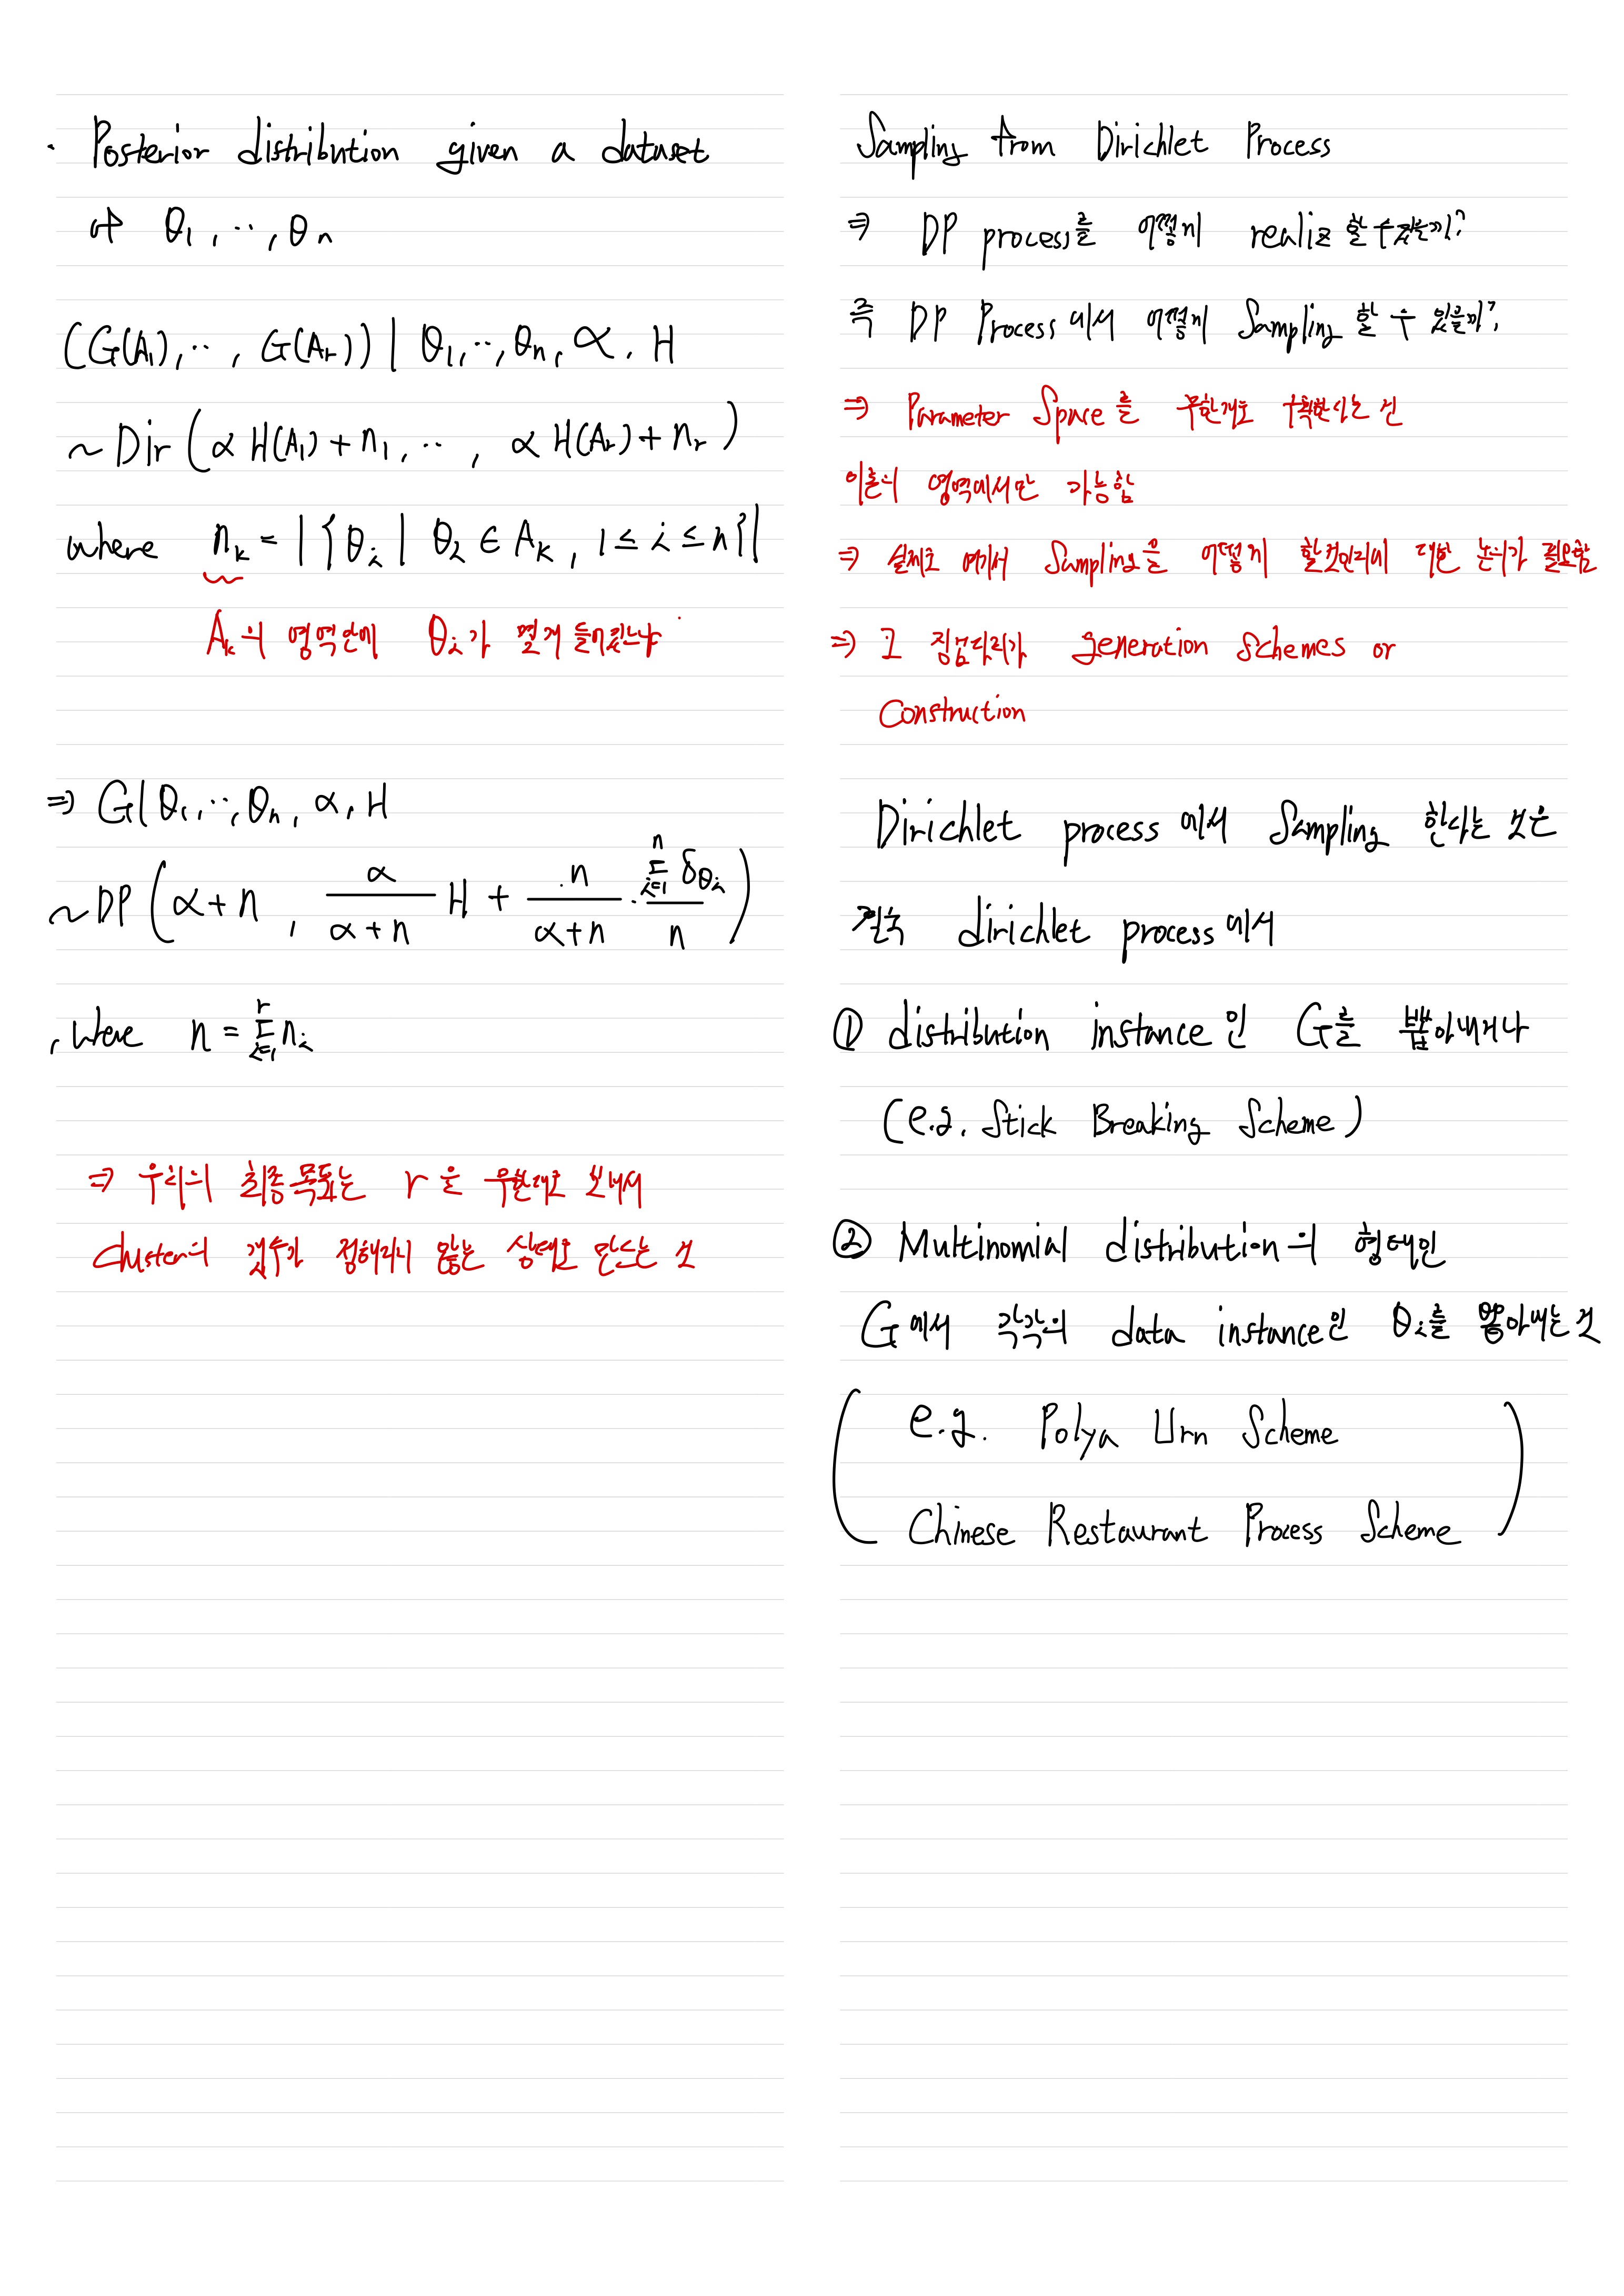 · Posterior distribution given a dataset
of θ₁, ··, θₙ
(G(A₁), ··, G(Aᵣ)) | θ₁, ··, θₙ, α, H
~ Dir ( α H(A₁) + n₁, ·· , α H(Aᵣ) + nᵣ )
where nₖ = | { θᵢ | θ₂ ∈ Aₖ, 1 ≤ i ≤ n } |
Aₖ의 영역안에 θᵢ가 몇개 들어있느냐
⇒ G | θ₁, ··, θₙ, α, H
~ DP ( α + n , α/(α+n) H + n/(α+n) · Σᵢ₌₁ⁿ δ_θᵢ / n )
, where n = Σᵢ₌₁ʳ nᵢ
⇒ 우리의 최종목표는 r 은 무한대로 보내서
Cluster의 갯수가 정해지지 않는 상태로 만드는 것
Sampling from Dirichlet Process
⇒ DP process를 어떻게 realiz 할 수 있을까?
즉 DP Process 에서 어떻게 Sampling 할 수 있을까?
⇒ Parameter Space 를 무한개로 구획한다는 건
이론의 영역에서만 가능함
⇒ 실제로 여기서 Sampling을 어떻게 할것인지에 대한 논의가 필요함
⇒ 그 징검다리가 generation Schemes or
Construction
Dirichlet process 에서 Sampling 한다는 것은
결국 dirichlet process 에서
① distribution instance 인 G를 뽑아내거나
(e.g. Stick Breaking Scheme)
② Multinomial distribution 의 형태인
G 에서 각각의 data instance인 θᵢ를 뽑아내는 것
( e.g. Polya Urn Scheme
Chinese Restaurant Process Scheme )